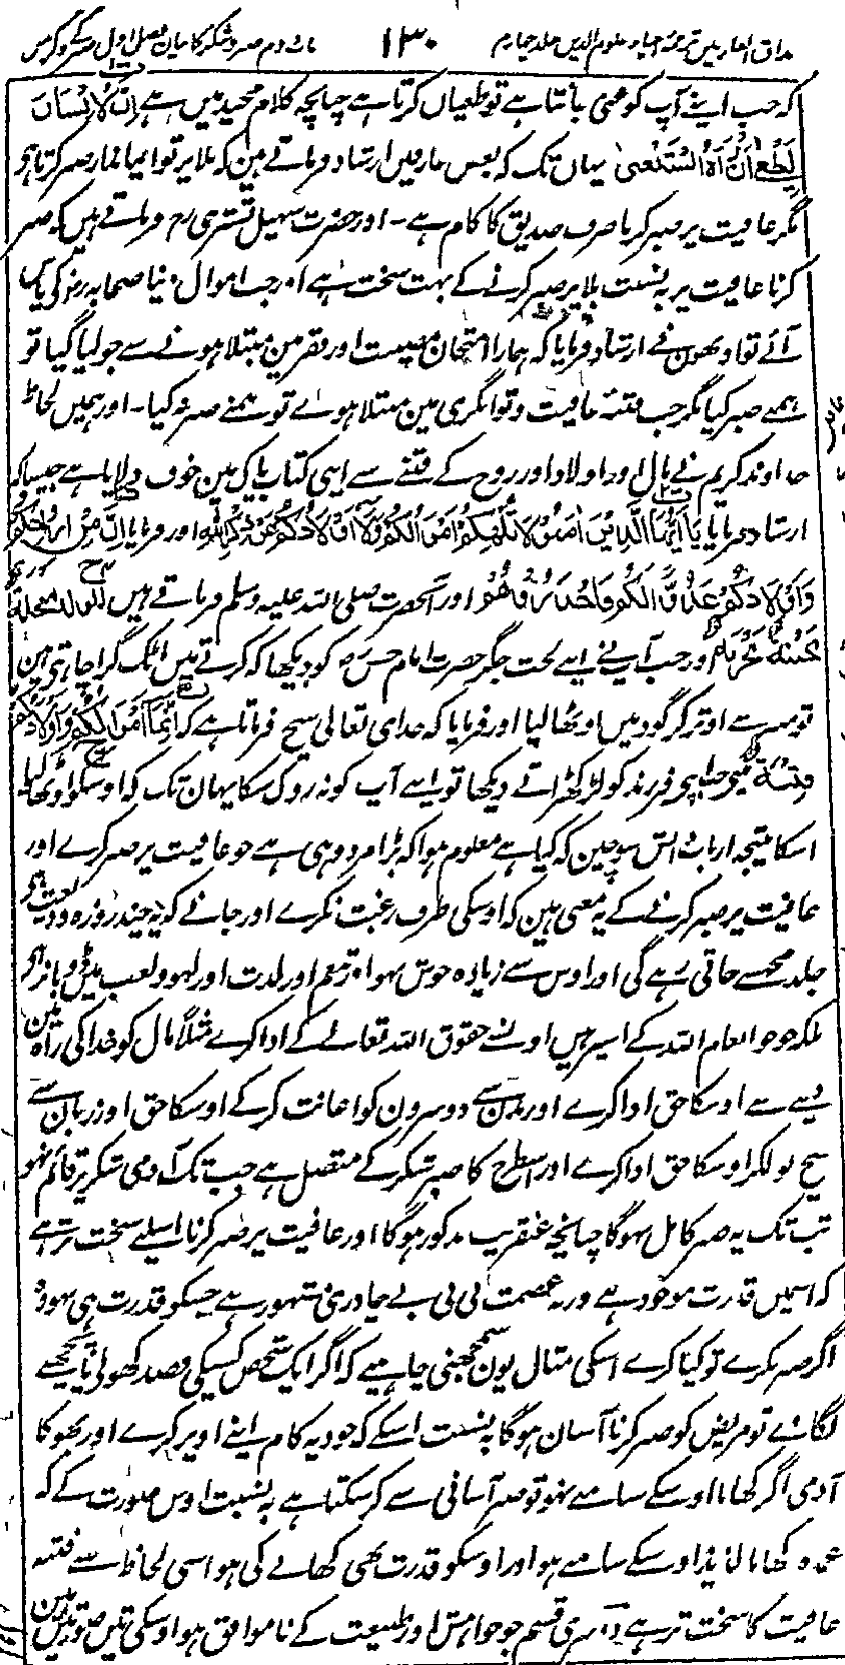 مذاق العارفین ترجمہ احیاء علوم الدین جلد چہارم ۱۳۰ باب دوم صبر و شکر کا بیان فصل اول صبر کے ذکر میں
کہ جب اپنے آپ کو غنی پاتا ہے تو طغیان کرتا ہے چنانچہ کلام مجید میں ہے اِنَّ الْاِنْسَانَ
لَیَطْغٰی اَنْ رَّاٰہُ اسْتَغْنٰی یہاں تک کہ بعض عارفین ارشاد فرماتے ہین کہ بلا پر تو ایماندار صبر کرتا ہے
مگر عافیت پر صبر کرنا صرف صدیق کا کام ہے۔ اور حضرت سہیل تستری رح فرماتے ہیں کہ صبر
کرنا عافیت پر بہ نسبت بلا پر صبر کرنے کے بہت سخت ہے اور جب اموال دنیا صحابہ رضہ کی پاس
آئے تو اونھون نے ارشاد فرمایا کہ ہمارا امتحان مصیبت اور فقر مین مبتلا ہونے سے جو لیا گیا تو
ہمنے صبر کیا مگر جب فتنۂ عافیت و توانگری مین مبتلا ہوے تو ہمنے صبر نہ کیا۔ اور ہمیں لحاظ
خداوند کریم نے مال اور اولاد اور زوج کے فتنے سے اپنی کتاب پاک مین خوف دلایا ہے جیسا کہ
ارشاد فرمایا یَا اَیُّہَا الَّذِیْنَ اٰمَنُوْا لَا تُلْہِکُمْ اَمْوَالُکُمْ وَلَا اَوْلَادُکُمْ عَنْ ذِکْرِ اللّٰہِ اور فرمایا اِنَّ مِنْ اَزْوَاجِکُمْ
وَاَوْلَادِکُمْ عَدُوًّا لَّکُمْ فَاحْذَرُوْہُمْ اور آنحضرت صلی اللہ علیہ وسلم فرماتے ہیں الولد مبخلۃ
مجبنۃ محزنۃ اور جب آپنے اپنے لخت جگر حضرت امام حسن رضہ کو دیکھا کہ کرتے میں اٹک گرا چاہتی ہین
تو منبر سے اوتر کر گود میں اوٹھا لیا اور فرمایا کہ خدای تعالی سچ فرماتا ہے کہ اِنَّمَا اَمْوَالُکُمْ وَاَوْلَادُکُمْ
فِتْنَۃٌ مینے اپنے فرزند کو لڑکھڑاتے دیکھا تو اپنے آپ کو نہ روک سکا یہان تک کہ اوسکو اوٹھا لیا
اسکا نتیجہ ارباب انس سوچین کہ کیا ہے معلوم ہوا کہ بڑا مرد وہی ہے جو عافیت پر صبر کرے اور
عافیت پر صبر کرنے کے یہ معنی ہین کہ اوسکی طرف رغبت نکرے اور جانے کہ یہ چند روزہ ودیعت ہے کہ
جلد مجھسے جاتی رہے گی اور اوس سے زیادہ خوش نہو اور تنعم اور لذت اور لہو و لعب میں نہ
بلکہ جو جو انعام اللہ کے اسپر ہیں اونسے حقوق اللہ تعالے کے ادا کرے مثلاً مال کو خدا کی راہ مین
دینے سے اوسکا حق ادا کرے اور بدن سے دوسرون کو اعانت کرکے اوسکا حق اور زبان سے
سچ بولکر اوسکا حق ادا کرے اور اسطرح کا صبر شکر کے متصل ہے جب تک آدمی شکر پر قائم نہو
تب تک یہ صبر کامل نہوگا چنانچہ عنقریب مذکور ہوگا اور عافیت پر صبر کرنا اسلیے سخت تر ہے
کہ اسمیں قدرت موجود ہے ورنہ عصمت بی بی بے چادری مشہور ہے جسکو قدرت ہی نہو وہ
اگر صبر نکرے تو کیا کرے اسکی مثال یون سمجھنی چاہیے کہ اگر ایک شخص کسیکی فصد کھولے یا پچھنے
لگائے تو مریض کو صبر کرنا آسان ہوگا بہ نسبت اسکے کہ خود یہ کام اپنے اوپر کرے اور بھوکا
آدمی اگر کھانا اوسکے سامنے نہو تو صبر آسانی سے کر سکتا ہے بہ نسبت اوس صورت کے کہ
عمدہ کھانا لذیذ اوسکے سامنے ہو اور اوسکو قدرت بھی کھانے کی ہو اسی لحاظ سے فتنہ
عافیت کا سخت تر ہے دوسری قسم جو خواہش اور طبیعت کے ناموافق ہو اوسکی تین صورتیں ہین